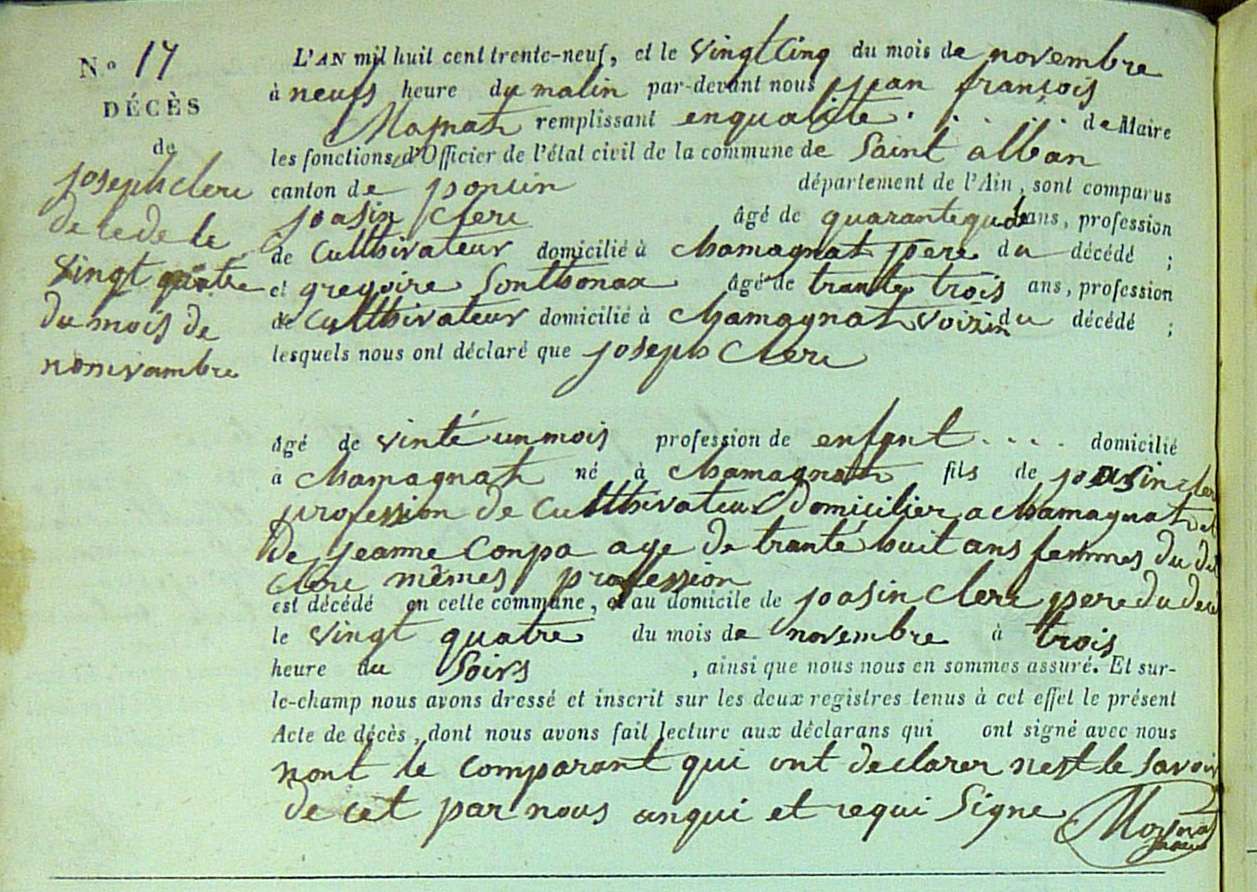 N.° 17
DÉCÈS
de
joseph clerc
de cede le
vingt quatre
du mois de
nomvambre
L'AN mil huit cent trente-neuf, et le vingt cinq du mois de novembre
à neufs heure du matin par-devant nous jean françois
Moynat remplissant enqualite . . . . . de Maire
les fonctions d'Officier de l'état civil de la commune de Saint alban
canton de poncin département de l'Ain, sont comparus
joasin clerc âgé de quarante quatre ans, profession
de Culthivateur domicilié à Chamagnat pere du décédé ;
et gregoire Sonthonax âgé de trante trois ans, profession
de Culthivateur domicilié à Chamagnat voizin du décédé ;
lesquels nous ont déclaré que joseph Clerc
âgé de vinté un mois profession de enfant . . . . domicilié
à Chamagnat né à Chamagnat fils de joasin clerc
profession de Culthivateur domicilier a Chamagnat et
de jeanne Conpa age de tranté huit ans femmes du dit
Clerc mêmes profession
est décédé en cette commune, et au domicile de joasin clerc pere du
le vingt quatre du mois de novembre à trois
heure du Soirs , ainsi que nous nous en sommes assuré. Et sur-
le-champ nous avons dressé et inscrit sur les deux registres tenus à cet effet le présent
Acte de décès, dont nous avons fait lecture aux déclarans qui ont signé avec nous
nont le Comparant qui ont declarer nest le Savoir
de cet par nous anqui et requi Signe Moynat